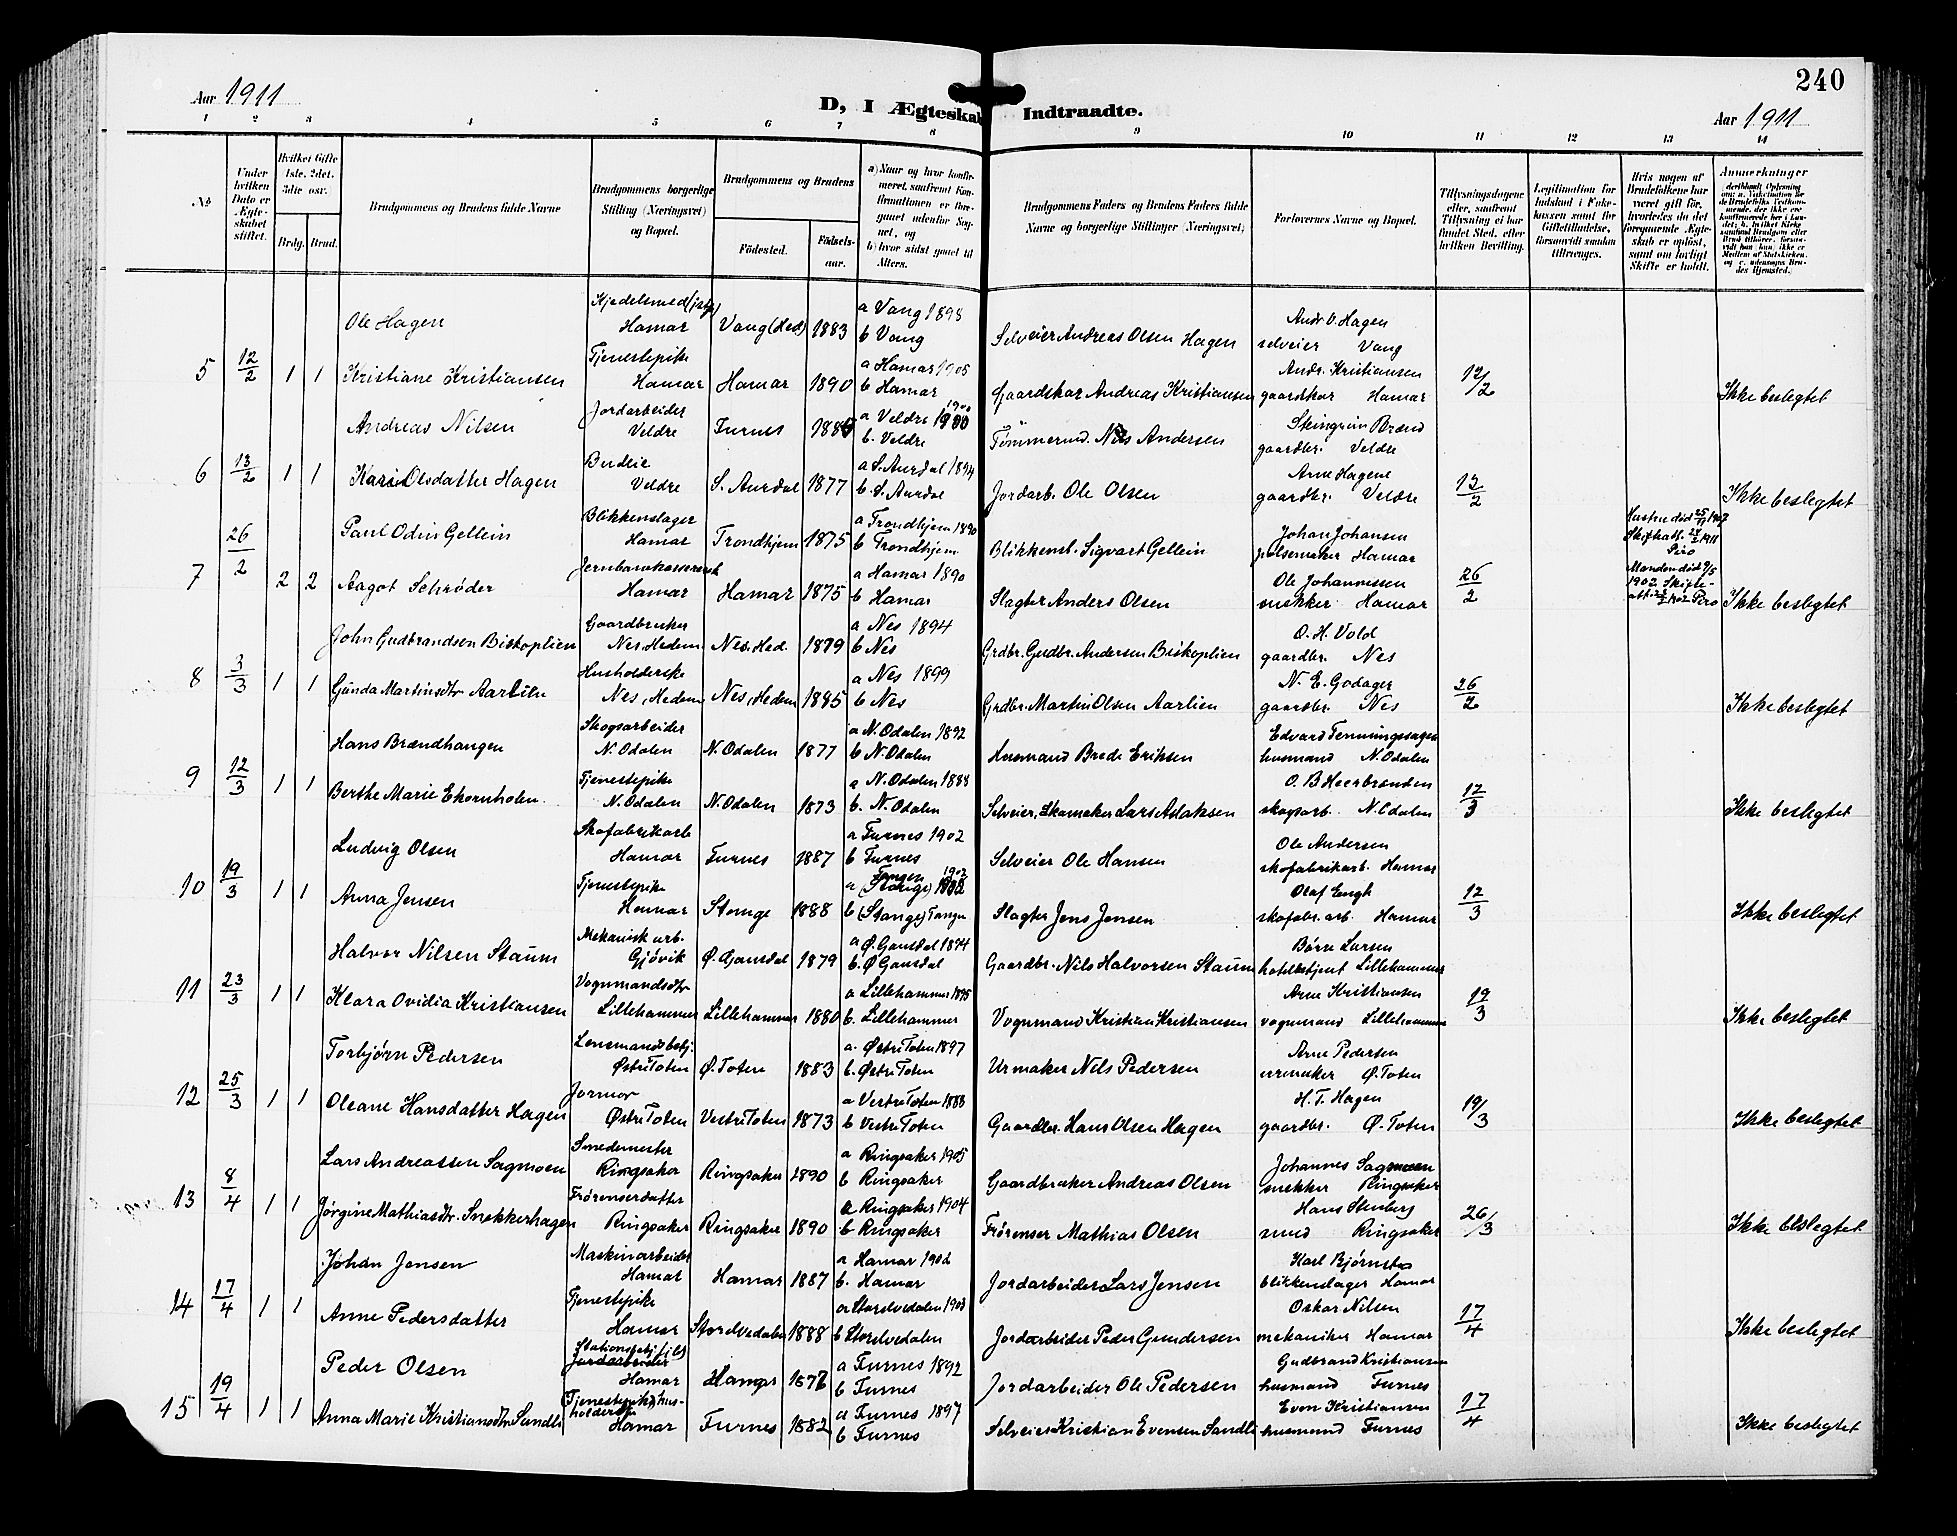 240
Aar 1911
D, I Ægteskab Indtraadte.
Aar 1911
1 2 3 4 5 6 7 8 9 10 11 12 13 14
No
Under hvilken Dato er Ægteskabet stiftet.
Hvilket Gifte 1ste, 2det, 3die osv.
Brdg. Brud.
Brudgommens og Brudens fulde Navne
Brudgommens borgerlige Stilling (Næringsvei) og Bopæl.
Brudgommens og Brudens
Födested.
Födsels-aar.
a) Naar og hvor konfirmeret, saafremt Konfirmationen er foregaaet udenfor Sognet, og
b) hvor sidst gaaet til Alters.
Brudgommens Faders og Brudens Faders fulde Navne og borgerlige Stillinger (Næringsvei)
Forlovernes Navne og Bopæl.
Tillysningsdagene eller, saafremt Tillysning ei har fundet Sted, efter hvilken Bevilling.
Legitimation for Indskud i Fokkassen samt for Giftetilladelse, forsaavidt saadan tiltrænges.
Hvis nogen af Brudefolkene har været gift før, hvorledes da det foregaaende Ægteskab er opløst, samt om lovligt Skifte er holdt.
Anmærkninger
Ole Hagen Kjedelsmed Hamar Vang (Hed) 1883 a Vang 1898 b Vang Selveier Andreas Olsen Hagen Andr. O. Hagen selveier Vang
5 12/2 1 1 Kristiane Kristiansen Tjenestepike Hamar Hamar 1890 a Hamar 1905 b Hamar Gaardskar Andreas Kristiansen Andr. Kristiansen gaardskar Hamar 12/2 Ikke beslegtet
Andreas Nilsen Jordarbeider Veldre Furnes a Veldre 1900 b. Veldre Tømmermd. Nils Andersen Steingrim Brænd gaardbr. Veldre
6 13/2 1 1 Kari Olsdatter Hagen Budeie Veldre S. Aurdal 1877 a S. Aurdal 1894 b. S. Aurdal Jordarb. Ole Olsen Arne Hagene gaardbr. Veldre 12/2 Ikke beslegtet
Paul Odin Gellein Blikkenslager Hamar Trondhjem 1875 a Trondhjem 1890 b Trondhjem Blikkensl. Sigvart Gellein Johan Johansen pølsemaker Hamar Hustru død 25/11 1907 Skifteatt.
7 26/2 2 2 Aagot Schrøder Jernbanekassererske Hamar Hamar 1875 a Hamar 1890 b Hamar Slagter Anders Olsen Ole Johannessen snekker Hamar 26/2 Manden død 9/5 1902. Skifte-att. Ikke beslegtet
John Gudbrandsen Biskoplien Gaardbruker Nes, Hedem Nes, Hed. 1879 a Nes 1894 b Nes Grdbr. Gudbr. Andersen Biskoplien O. H. Vold gaardbr. Nes
8 3/3 1 1 Gunda Martinsdtr Aarlien Husholderske Nes, Hedem Nes, Hedem 1885 a Nes 1899 b Nes Grdbr. Martin Olsen Aarlien N. E. Godager gaardbr. Nes 26/2 Ikke beslegtet
Hans Brændhaugen Skogsarbeider N. Odalen N. Odalen 1877 a N. Odalen 1892 b N. Odalen Husmand Brede Eriksen Edvard husmand N. Odalen
9 12/3 1 1 Berthe Marie Ekornholen Tjenestepike N. Odalen N. Odalen 1873 a N. Odalen 1888 b. N. Odalen Selveier, Skomaker Lars Adaksen O. B. Heerbrænden skogsarb. N. Odalen 12/3 Ikke beslegtet
Ludvig Olsen Skofabrikarb Hamar Furnes 1887 a Furnes 1902 b Furnes Selveier Ole Hansen Ole Andersen skofabrikarb. Hamar
10 19/3 1 1 Anna Jensen Tjenestepike Hamar Stange 1888 a Tangen (Stange) 1902 b (Stange) Tangen Slagter Jens Jensen Olaf Engh skofabr. arb. Hamar 12/3 Ikke beslegtet
Halvor Nilsen Staum Mekanisk arb. Gjøvik Ø. Gausdal 1879 a Ø. Gausdal 1894 b. Ø Gausdal Gaardbr. Nils Halvorsen Staum Børre Larsen hotelkstjent Lillehammer
11 23/3 1 1 Klara Ovidia Kristiansen Vognmandsdtr Lillehammer Lillehammer 1880 a Lillehammer 1895 b. Lillehammer Vognmand Kristian Kristiansen Arne Kristiansen vognmand Lillehammer 19/3 Ikke beslegtet
Torbjørn Pedersen Lensmandsbetj. Østre Toten Ø. Toten 1883 a. Østre Toten 1897 b. Østre Toten Urmaker Nils Pedersen Arne Pedersen urmaker Ø. Toten
12 25/3 1 1 Oleane Hansdatter Hagen Jormor Østre Toten Vestre Toten 1873 a Vestre Toten 1888 b Vestre Toten Gaardbr. Hans Olsen Hagen H. T. Hagen gaardbr. Ø. Toten 19/3 Ikke beslegtet
Lars Andreassen Sagmoen Smedemester Ringsaker Ringsaker 1890 a Ringsaker 1905 b Ringsaker Gaardbruker Andreas Olsen Johannes Sagmoen snekker Ringsaker
13 8/4 1 1 Jørgine Mathiasdtr. Snekkerhagen Frørenserdatter Ringsaker Ringsaker 1890 a Ringsaker 1904 b Ringsaker Frørenser Mathias Olsen Hans Stenberg smed Ringsaker 26/3 Ikke beslegtet
Johan Jensen Maskinarbeider Hamar Hamar 1887 a Hamar 1902 b. Hamar Jordarbeider Lars Jensen Karl Bjørnstad blikkenslager Hamar
14 17/4 1 1 Anne Pedersdatter Tjenestepike Hamar Storelvedalen 1888 a Storelvedalen 1903 b Storelvedalen Jordarbeider Peder Gundersen Oskar Nilsen mekaniker Hamar 17/4 Ikke beslegtet
Peder Olsen Stationsbetj. Jordarbeider Hamar Hamar a Furnes 1892 b Furnes Jordarbeider Ole Pedersen Gudbrand Kristiansen husmand Furnes
15 19/4 1 1 Anna Marie Kristiansdtr Sandli Tjenestepike, husholderske Hamar Furnes 1882 a Furnes 1897 b Furnes Selveier Kristian Evensen Sandli Even Kristiansen husmand Furnes 17/4 Ikke beslegtet